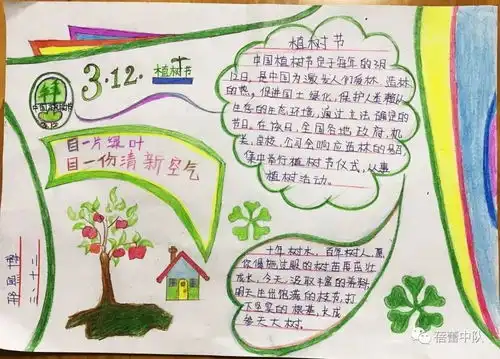 3.12.植树节
中国植树节
3.12
目一片绿叶
目一份清新空气
植树节
中国植树节定于每年的3月
12日,是中国为激发人们爱林、造林
的热,促进国土绿化,保护人类赖以
生存的生态环境,通过立法确定的
节日。在该日,全国各地政府,机
关、学校、公司会响应造林的号召
集中举行植树节仪式,从事
植树活动。
十年树木,百年树人,愿
你像施过肥的树苗茁壮
成长,今天,汲取丰富的养料
明天住出饱满的枝芽,打
下坚实的根基,长成
参天大树。
植树节
三、十二
蓓蕾中队